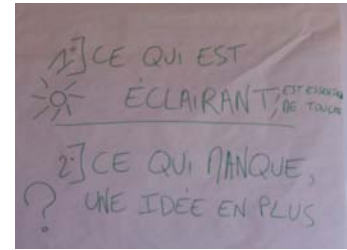 1°] CE QUI EST
ÉCLAIRANT, EST ESSENTIEL
DE TOUCHE
2°] CE QUI MANQUE,
? UNE IDÉE EN PLUS